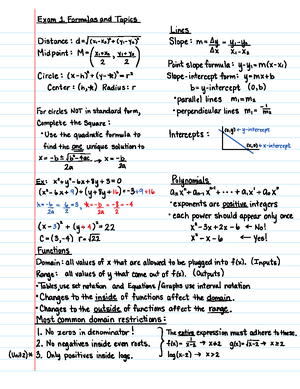 Exam 1 Formulas and Topics
Distance: d=√(x₁-x₂)²+(y₁-y₂)²
Midpoint: M=(x₁+x₂/2, y₁+y₂/2)
Circle: (x-h)²+(y-k)²=r²
Center: (h,k) Radius: r
For circles NOT in standard form,
Complete the Square:
• Use the quadratic formula to
find the one unique solution to
x = -b±√b²-4ac / 2a → x = -b/2a
Lines
Slope: m = Δy/Δx = y₂-y₁/x₂-x₁
Point slope formula: y-y₁=m(x-x₁)
Slope-intercept form: y=mx+b
b=y-intercept (0,b)
•parallel lines m₁=m₂
•perpendicular lines m₁=-1/m₂
Intercepts:
(0,y) → y-intercept
(x,0) → x-intercept
Ex: x²+y²-6x+8y+3=0
(x²-6x+9)+(y²+8y+16)=-3+9+16
h=-b/2a=6/2=3, k=-b/2a=-8/2=-4
(x-3)²+(y+4)²=22
C=(3,-4) r=√22
Polynomials
aₙxⁿ+aₙ₋₁xⁿ⁻¹+···+a₁x¹+a₀x⁰
•exponents are positive integers
•each power should appear only once
x²-3x+2x-6 ← No!
x²-x-6 ← Yes!
Functions
Domain: all values of x that are allowed to be plugged into f(x). (Inputs)
Range: all values of y that come out of f(x). (Outputs)
•Tables use set notation and Equations/Graphs use interval notation
•Changes to the inside of functions affect the domain.
•Changes to the outside of functions affect the range.
Most common domain restrictions:
1. No zeros in denominator!
2. No negatives inside even roots.
(Unit 2) 3. Only positives inside logs.
The entire expression must adhere to these.
log(x-2) → x>2